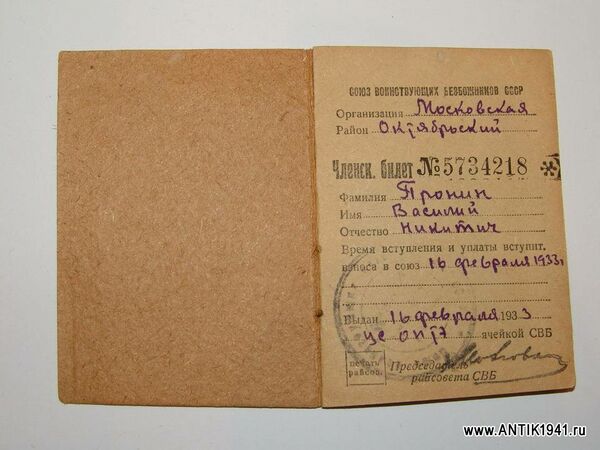 СОЮЗ ВОИНСТВУЮЩИХ БЕЗБОЖНИКОВ СССР
Организация Московская
Район Октябрьский
Членск. билет №5734218
Фамилия Пронин
Имя Василий
Отчество Никитич
Время вступления и уплаты вступит.
взноса в союз 16 февраля 1933г
Выдан 16 февраля 1933
ячейкой СВБ
печать райсов.
Председатель
райсовета СВБ
www.ANTIK1941.ru